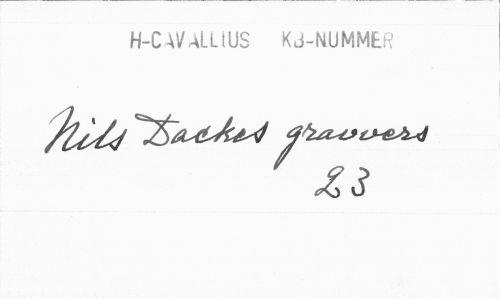 H-CAVALLIUS KB-NUMMER
Nils Dackes gravvers
23